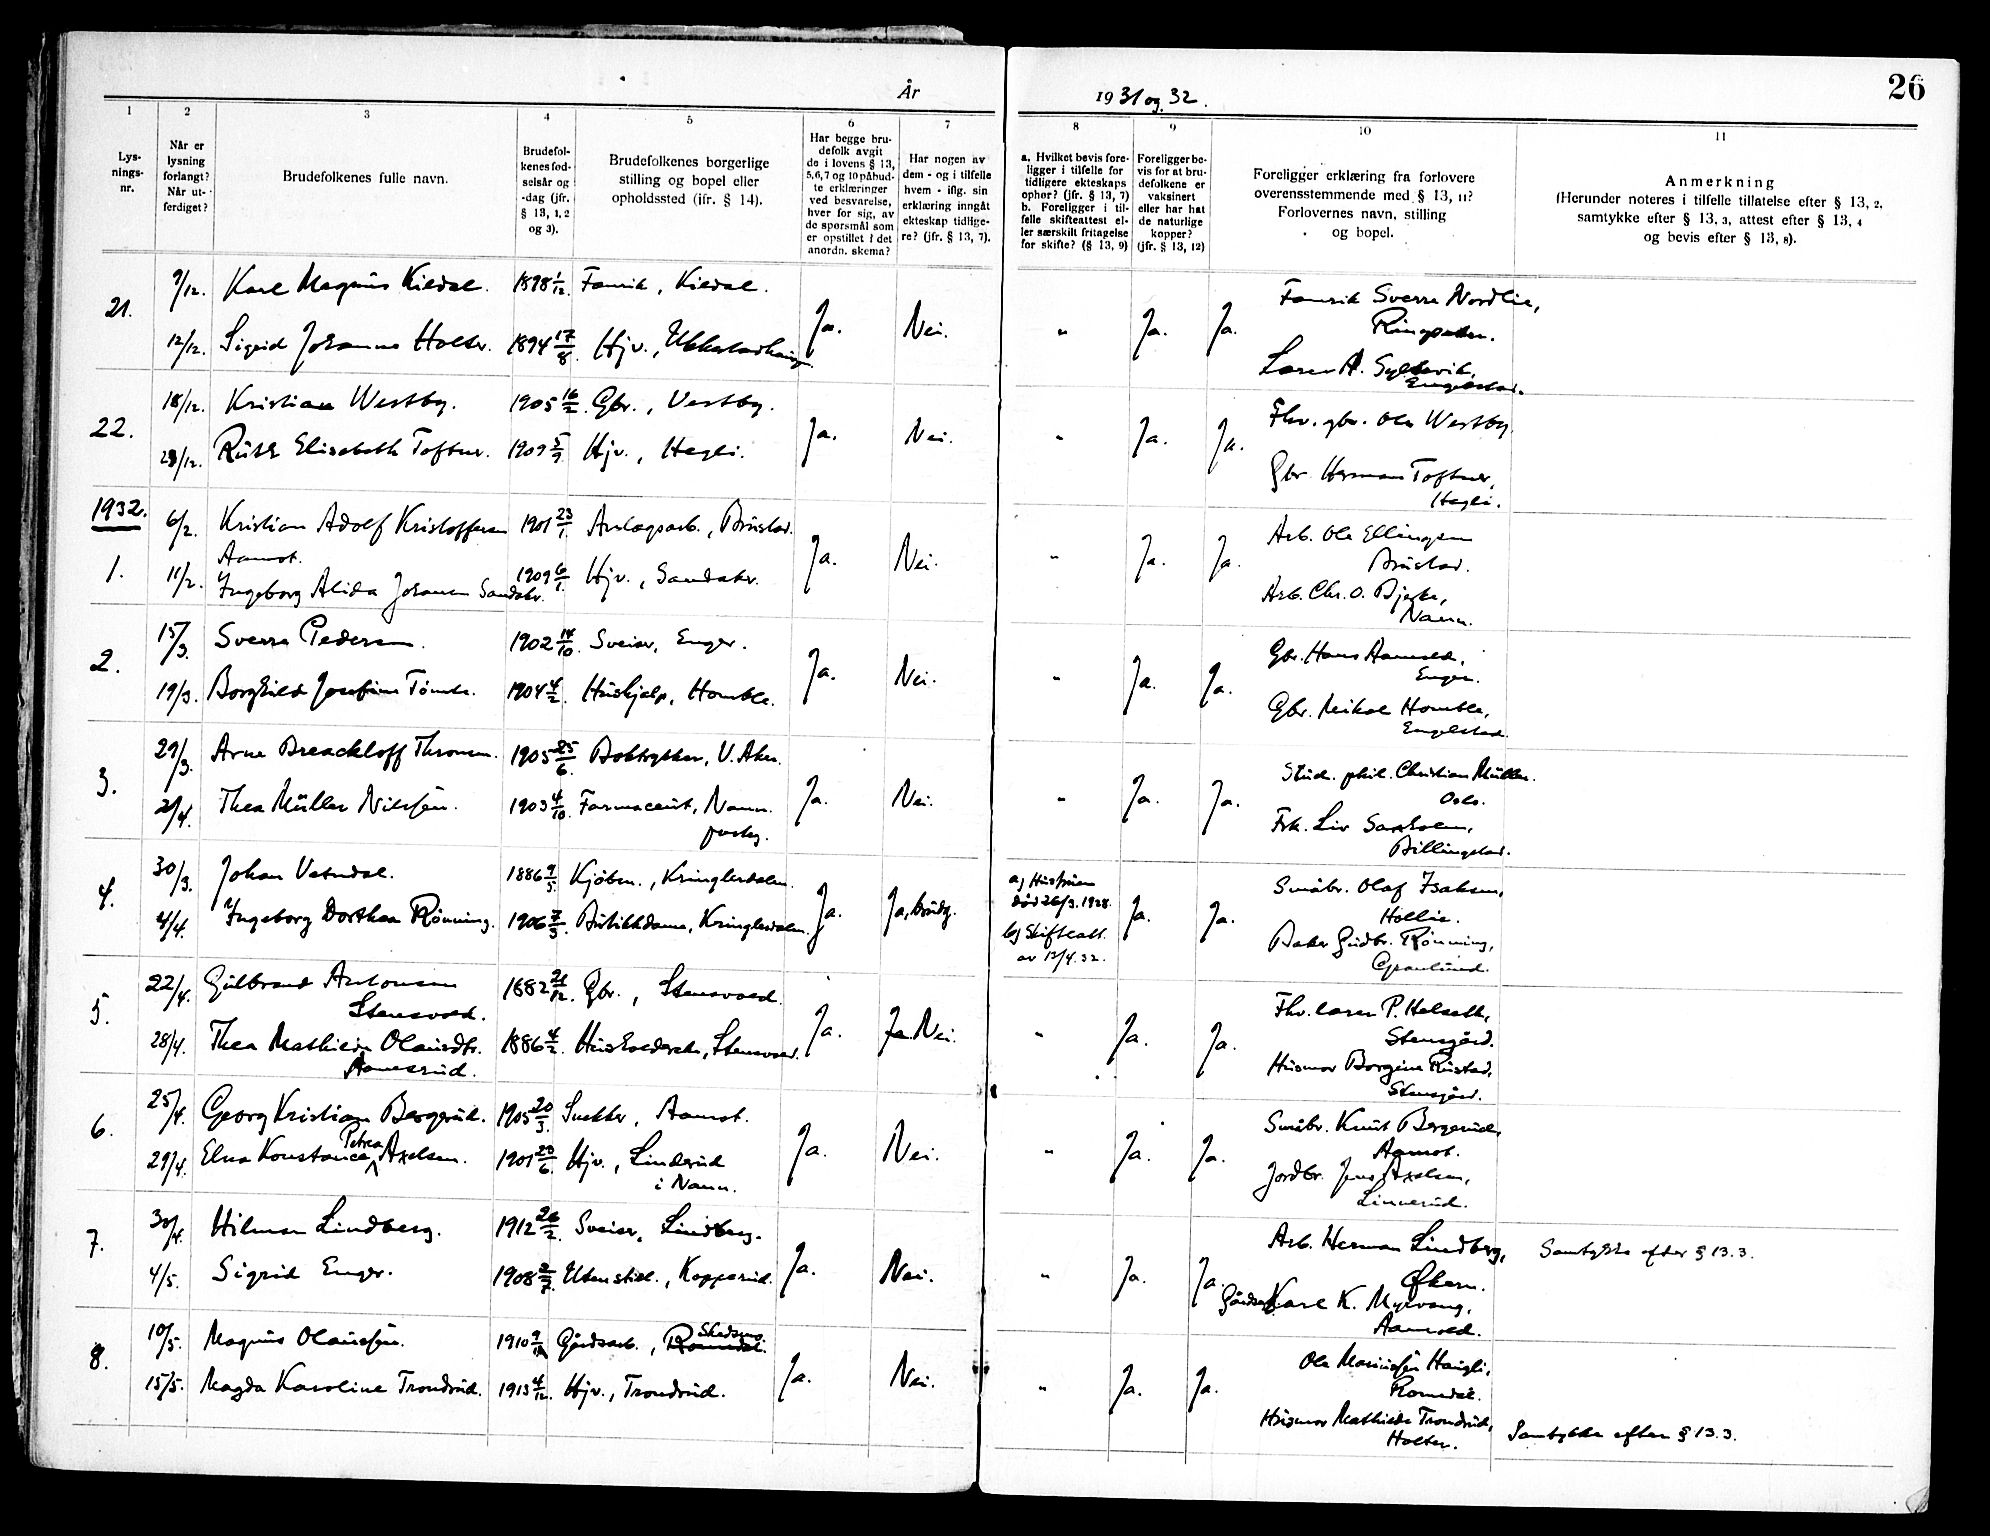 År 1931 og 32.
26
1 2 3 4 5 6 7 8 9 10 11
Lysningsnr.
Når er lysning forlangt? Når utferdiget?
Brudefolkenes fulle navn.
Brudefolkenes fødselsår og -dag (jfr. § 13, 1, 2 og 3).
Brudefolkenes borgerlige stilling og bopel eller opholdssted (jfr. § 14).
Har begge brudefolk avgit de i lovens § 13, 5,6,7 og 10 påbudte erklæringer ved besvarelse, hver for sig, av de spørsmål som er opstillet i det anordn. skema?
Har nogen av dem - og i tilfelle hvem - iflg. sin erklæring inngåt ekteskap tidligere? (jfr. § 13, 7).
a. Hvilket bevis foreligger i tilfelle for tidligere ekteskaps ophør? (jfr. § 13, 7)
b. Foreligger i tilfelle skifteattest eller særskilt fritagelse for skifte? (§ 13, 9)
Foreligger bevis for at brudefolkene er vaksinert eller har hat de naturlige kopper? (jfr. § 13, 12)
Foreligger erklæring fra forlovere overensstemmende med § 13, 11? Forlovernes navn, stilling og bopel.
Anmerkning
(Herunder noteres i tilfelle tillatelse efter § 13, 2, samtykke efter § 13, 3, attest efter § 13, 4 og bevis efter § 13, 8).
21.
9/12. Karl Magnus Kildal. 1898 1/12 Fanrik, Kildal.
12/12. Sigrid Johanne Holter. 1894 17/8. Hjv.,
Ja. Nei. " Ja. Ja.
Fanrik Sverre Nordlie,
Ringsaker.
Lærer A.
Engelstad.
22.
18/12. Kristian Westby. 1905 16/2. Gbr., Vestby.
28/12. Ruth Elisabeth Toftner. 1909 5/9. Hjv., Hegli.
Ja. Nei. " Ja. Ja.
Fhv. gbr. Ole Westby.
Gbr. Herman Toftner,
Hegli.
1932.
1.
6/2. Kristian Adolf Kristoffersen 1901 23/1. Anlægsarb., Brustad.
Aamot.
11/2. Ingeborg Alida Johansen Sandaker. 1909 6/1. Hjv., Sandaker.
Ja. Nei. " Ja. Ja.
Arb. Ole Ellingsen
Brustad.
Arb. Chr. O. Bjerke,
Nann.
2.
15/3. Sverre Pedersen. 1902 14/10. Sveiser, Enger.
19/3. Borghild Josefine Tømte. 1904 4/2. Hushjelp, Homble.
Ja. Nei. " Ja. Ja.
Gbr. Hans Aamold,
Enger.
Gbr. Mikal Homble,
Engelstad.
3.
29/3. Arne Breackloff Thronsen. 1905 25/6. Boktrykker, V. Aker.
2/4. Thea Müller Nilssen. 1903 4/10. Farmaceut, Nann.
Ja. Nei. " Ja. Ja.
Stud. phil. Christian Müller.
Oslo.
Frk. Liv Saxholm,
Billingstad.
4.
30/3. Johan Vatndal. 1886 9/5. Kjøbm., Kringlerdalen.
4/4. Ingeborg Dorthea Rønning. 1906 7/3. Butikkdame, Kringlerdalen.
Ja. Ja, brudg.
a) Hustruen
død 26/3. 1928.
b) Skifteatt.
av 12/4. 32.
Ja. Ja.
Småbr. Olaf Isaksen,
Hollie.
Baker Gudbr. Rønning,
Granlund.
5.
22/4. Gulbrand Antonsen
Stensvold. 1882 21/12. Gbr., Stensvold.
28/4. Thea Mathilde Olausdtr.
Aamesrud. 1886 4/2. Husholderske, Stensvold.
Ja. Ja. Nei. " Ja. Ja.
Fhv. lærer P. Helseth,
Stensgård.
Husmor Borgine Rustad,
Stensgård.
6.
25/4. Georg Kristian Bergerud. 1905 20/3. Snekker, Aamot.
29/4. Elna Konstance Petrea Axelsen. 1901 23/6. Hjv., Linderud
i Nann.
Ja. Nei. " Ja. Ja.
Småbr. Knut Bergerud,
Aamot.
Jordbr. Jens Axelsen,
Linnerud.
7.
30/4. Hilmar Lindberg. 1912 26/2. Sveiser, Lindberg.
4/5. Sigrid Enger. 1908 2/7. Utenstel., Kopperud.
Ja. Nei. " Ja. Ja.
Arb. Herman Lindberg,
Økern.
Gårdsarb. Karl K. Myrvang,
Aamold.
Samtykke efter § 13.3.
8.
10/5. Magnus Olaussen. 1910 Gårdsarb., Romedal. Skedsmo.
15/5. Magda Karoline Trondrud. 1913 4/12. Hjv., Trondrud.
Ja. Nei. " Ja. Ja.
Ole Mariussen Haugli,
Romedal.
Husmor Mathilde Trondrud,
Holter.
Samtykke efter § 13.3.